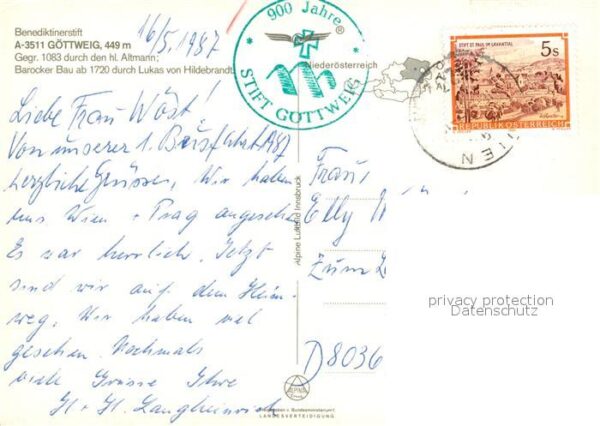 Benediktinerstift
A-3511 GÖTTWEIG, 449 m
Gegr. 1083 durch den hl. Altmann;
Barocker Bau ab 1720 durch Lukas von Hildebrandt
16/5. 1987
900 Jahre
STIFT GÖTTWEIG
Niederösterreich
STIFT ST. PAUL IM LAVANTTAL
5s
REPUBLIK ÖSTERREICH
WIEN
Liebe Frau Wöst!
Von unserer 1. Busfahrt 1987
herzliche Grüsse, Wir haben
uns Wien + Prag angesehen
Es war herrlich. Jetzt
sind wir auf dem Heim-
weg, Wir haben viel
gesehen. Nochmals
viele Grüsse Ihre
Frau
Elly
Zum
D8036
Alpine Luftbild Innsbruck
ALPINE
LANDESVERTEIDIGUNG
privacy protection
Datenschutz